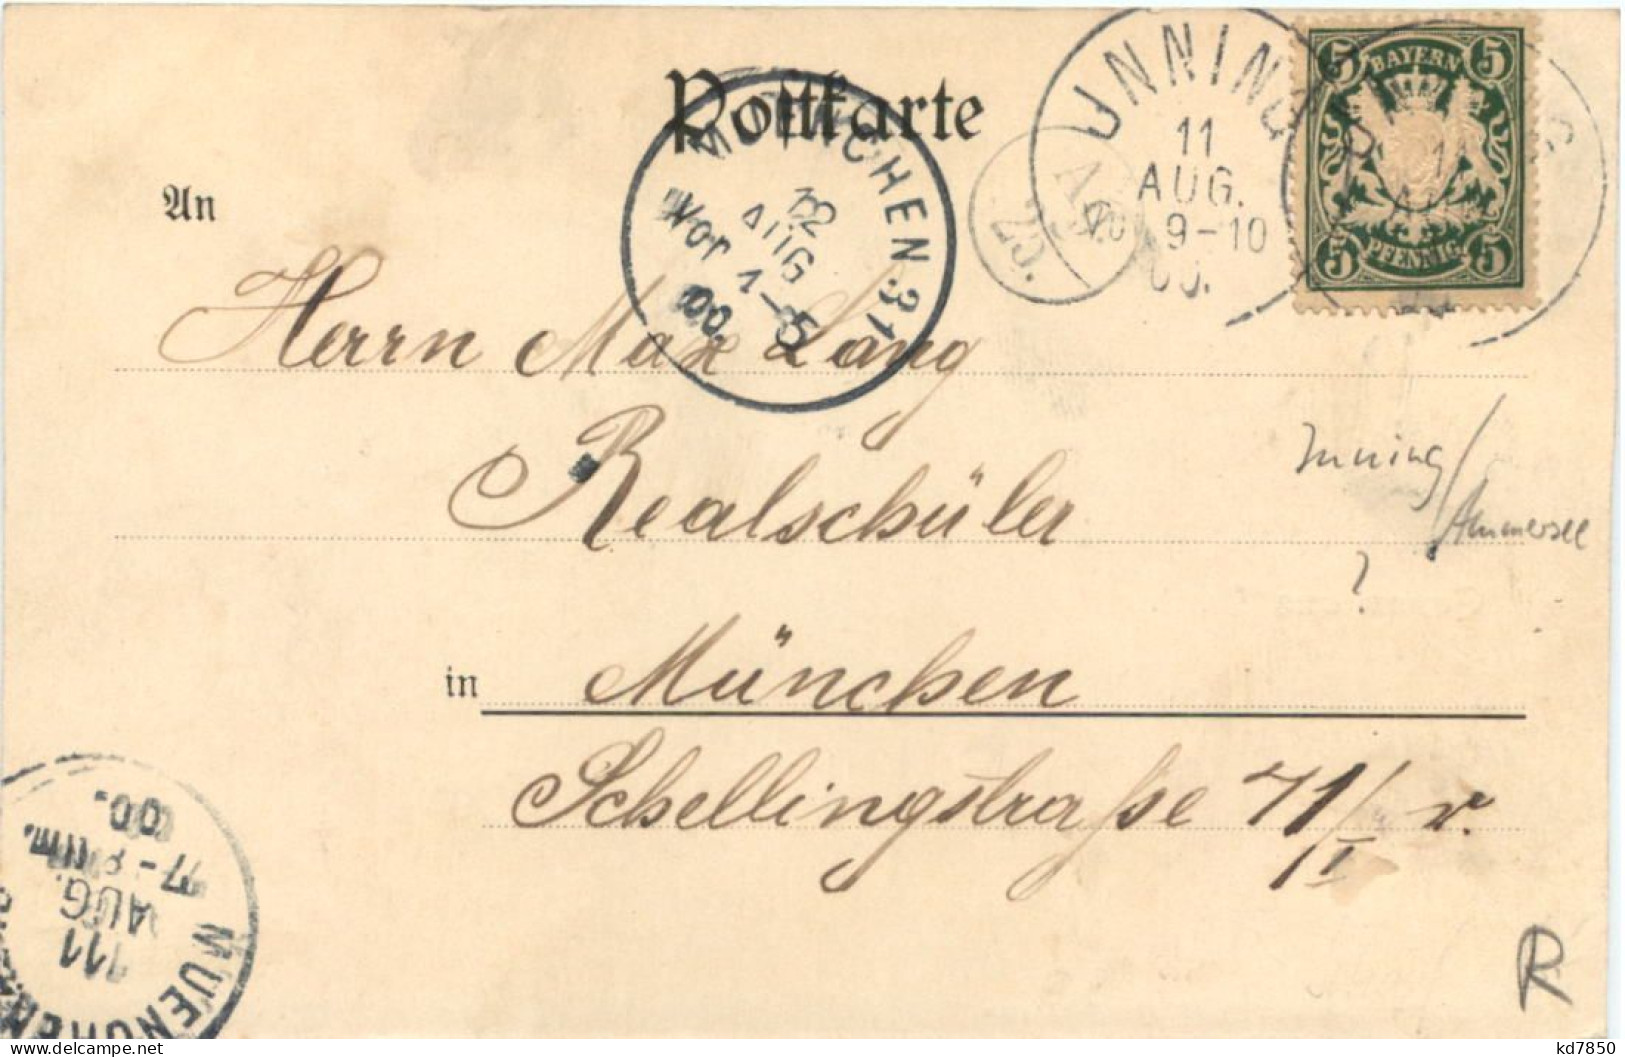 Postkarte
An
Herrn Max Lang
Realschüler
in München
Schellingstraße 71/I r.
BAYERN
5 5
5 5
PFENNIG
11
AUG.
9-10
00.
MUENCHEN 31
AUG
Vor 1-5
00.
25.
Inning/
Ammersee
?
MUENCHEN
AUG.
7-8 Nm.
00.
R
kd7850